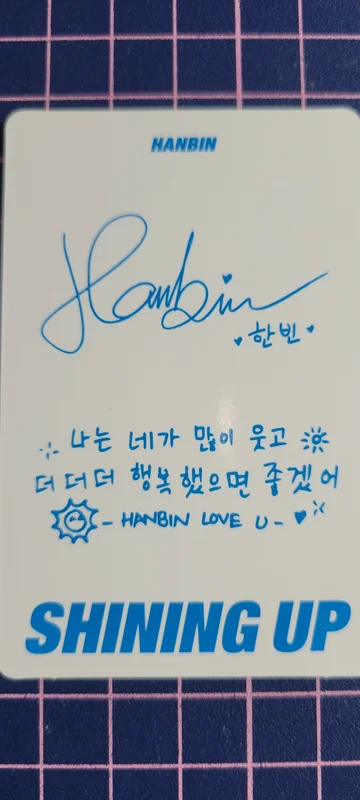 HANBIN
Hanbin
한빈
나는 네가 많이 웃고
더 더 더 행복했으면 좋겠어
- HANBIN LOVE U -
SHINING UP